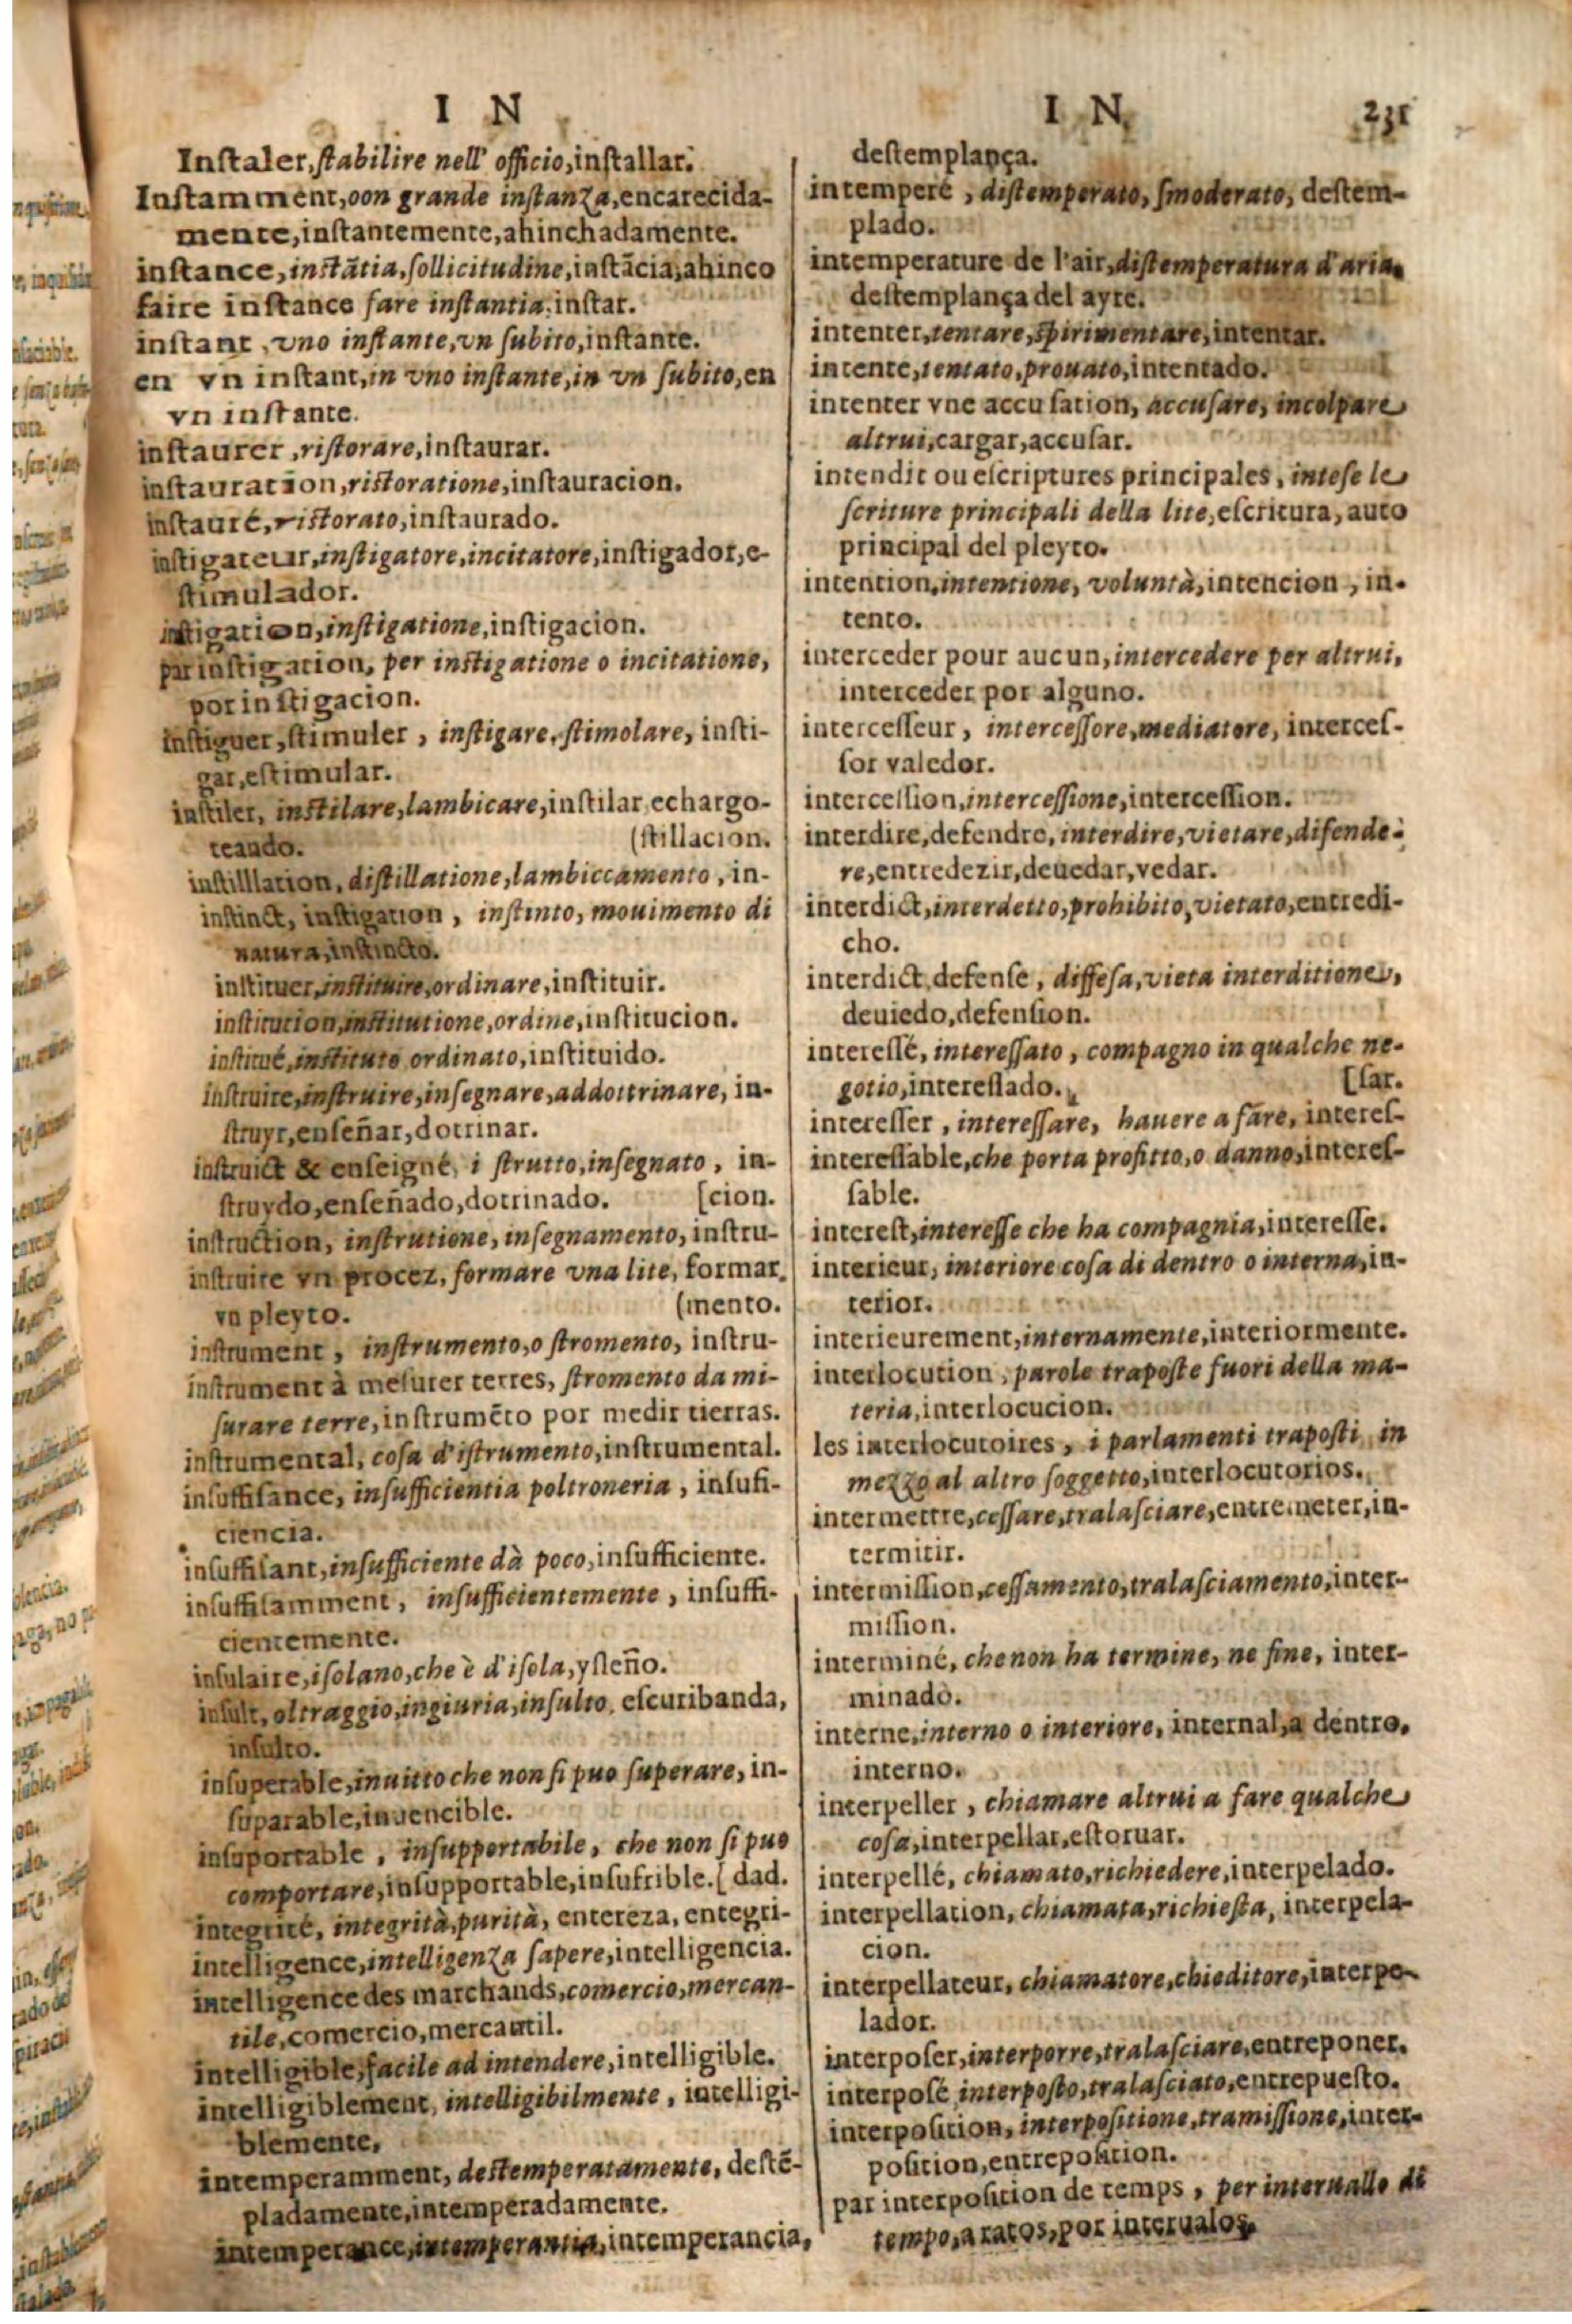 I N
Instaler, stabilire nell' officio, installar.
Instamment, oon grande instanza, encarecida-
mente, instantemente, ahinchadamente.
instance, instātia, sollicitudine, instācia, ahinco
faire instance fare instantia, instar.
instant, vno instante, vn subito, instante.
en vn instant, in vno instante, in vn subito, en
vn instante.
instaurer, ristorare, instaurar.
instauration, ristoratione, instauracion.
instauré, ristorato, instaurado.
instigateur, instigatore, incitatore, instigador, e-
stimulador.
instigation, instigatione, instigacion.
par instigation, per instigatione o incitatione,
por instigacion.
instiguer, stimuler, instigare, stimolare, insti-
gar, estimular.
instiler, instilare, lambicare, instilar echargo-
teando. (stillacion.
instilllation, distillatione, lambiccamento, in-
instinct, instigation, instinto, mouimento di
natura, instincto.
instituer, instituire, ordinare, instituir.
institution, institutione, ordine, institucion.
institué, instituto ordinato, instituido.
instruire, instruire, insegnare, addottrinare, in-
struyr, enseñar, dotrinar.
instruict & enseigné, i strutto, insegnato, in-
struydo, enseñado, dotrinado. [cion.
instruction, instrutione, insegnamento, instru-
instruire vn procez, formare vna lite, formar
vn pleyto. (mento.
instrument, instrumento, o stromento, instru-
instrument à mesurer terres, stromento da mi-
surare terre, instrumēto por medir tierras.
instrumental, cosa d'istrumento, instrumental.
insuffisance, insufficientia poltroneria, insufi-
ciencia.
insuffisant, insufficiente dà poco, insufficiente.
insuffisamment, insufficientemente, insuffi-
cientemente.
insulaire, isolano, che è d'isola, ysleño.
insult, oltraggio, ingiuria, insulto, escuribanda,
insulto.
insuperable, inuitto che non si puo superare, in-
suparable, inuencible.
insuportable, insupportabile, che non si puo
comportare, insupportable, insufrible. [dad.
integrité, integrità, purità, entereza, entegri-
intelligence, intelligenza sapere, intelligencia.
intelligence des marchands, comercio, mercan-
tile, comercio, mercantil.
intelligible, facile ad intendere, intelligible.
intelligiblement, intelligibilmente, intelligi-
blemente,
intemperamment, destemperatamente, destē-
pladamente, intemperadamente.
intemperance, intemperantia, intemperancia,
I N. 231
destemplança.
intemperé, distemperato, smoderato, destem-
plado.
intemperature de l'air, distemperatura d'aria,
destemplança del ayre.
intenter, tentare, spirimentare, intentar.
intente, tentato, prouato, intentado.
intenter vne accusation, accusare, incolpare
altrui, cargar, accusar.
intendit ou escriptures principales, intese le
scriture principali della lite, escritura, auto
principal del pleyto.
intention, intentione, voluntà, intencion, in-
tento.
interceder pour aucun, intercedere per altrui,
interceder por alguno.
intercesseur, intercessore, mediatore, interces-
sor valedor.
intercession, intercessione, intercession.
interdire, defendre, interdire, vietare, difende-
re, entredezir, deuedar, vedar.
interdict, interdetto, prohibito, vietato, entredi-
cho.
interdict, defense, diffesa, vieta interditione,
deuiedo, defension.
interessé, interessato, compagno in qualche ne-
gotio, interessado. [sar.
interesser, interessare, hauere a fare, interes-
interessable, che porta profitto, o danno, interes-
sable.
interest, interesse che ha compagnia, interesse.
interieur, interiore cosa di dentro o interna, in-
terior.
interieurement, internamente, interiormente.
interlocution, parole traposte fuori della ma-
teria, interlocucion.
les interlocutoires, i parlamenti traposti in
mezzo al altro soggetto, interlocutorios.
intermettre, cessare, tralasciare, entremeter, in-
termitir.
intermission, cessamento, tralasciamento, inter-
mission.
interminé, che non ha termine, ne fine, inter-
minado.
interne, interno o interiore, internal, a dentro,
interno.
interpeller, chiamare altrui a fare qualche
cosa, interpellar, estoruar.
interpellé, chiamato, richiedere, interpelado.
interpellation, chiamata, richiesta, interpela-
cion.
interpellateur, chiamatore, chieditore, interpe-
lador.
interposer, interporre, tralasciare, entreponer.
interposé interposto, tralasciato, entrepuesto.
interposition, interpositione, tramissione, inter-
position, entreposition.
par interposition de temps, per interuallo di
tempo, a ratos, por interualos.